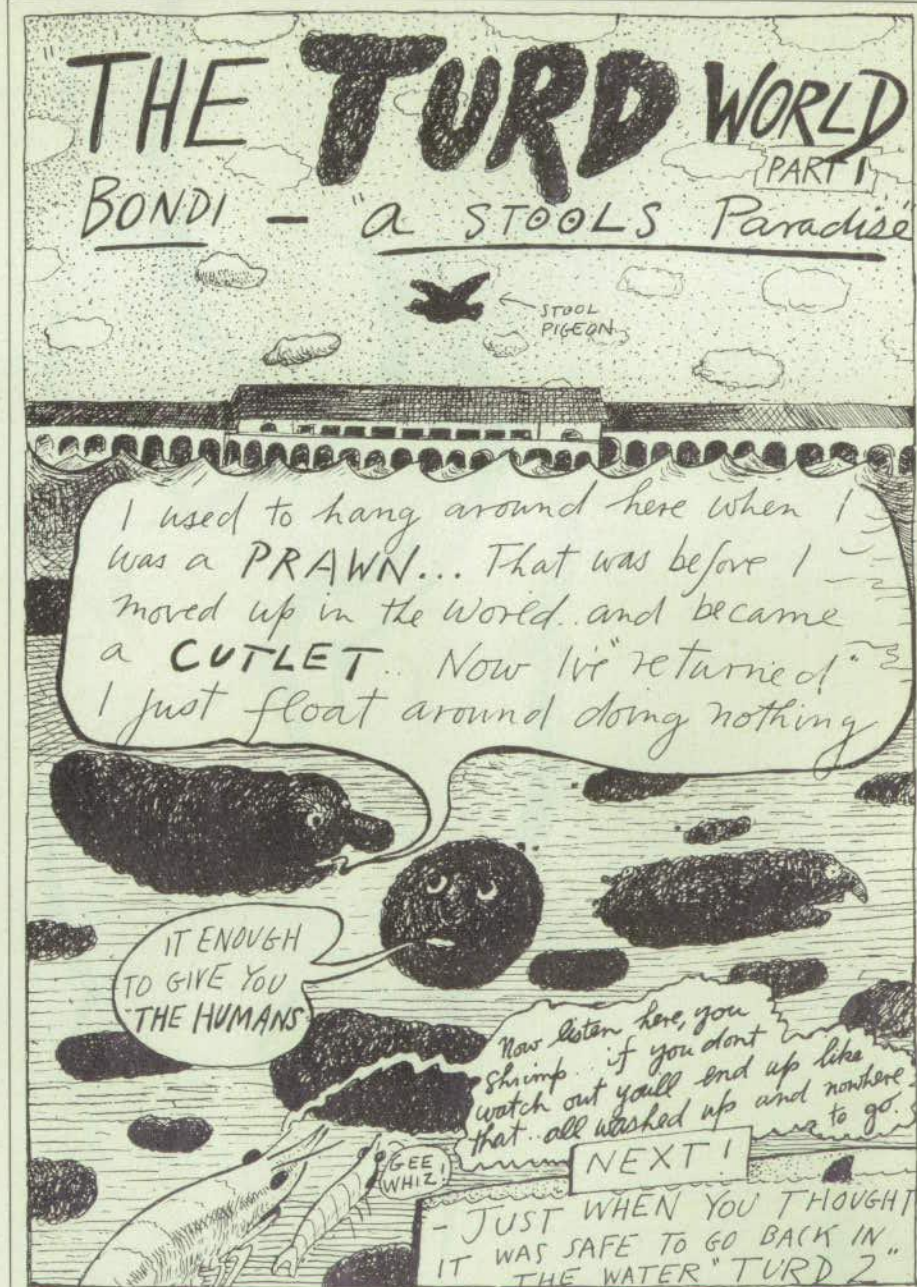 THE TURD WORLD
PART 1
BONDI - "a STOOLS Paradise"
STOOL
PIGEON
I used to hang around here when I
was a PRAWN... That was before I
moved up in the world.. and became
a CUTLET.. Now I've "returned"
I just float around doing nothing
IT ENOUGH
TO GIVE YOU
"THE HUMANS
Now listen here, you
shrimp... if you dont
watch out youll end up like
that.. all washed up and nowhere
to go.
GEE
WHIZ!
NEXT!
- JUST WHEN YOU THOUGHT
IT WAS SAFE TO GO BACK IN
THE WATER "TURD 2"